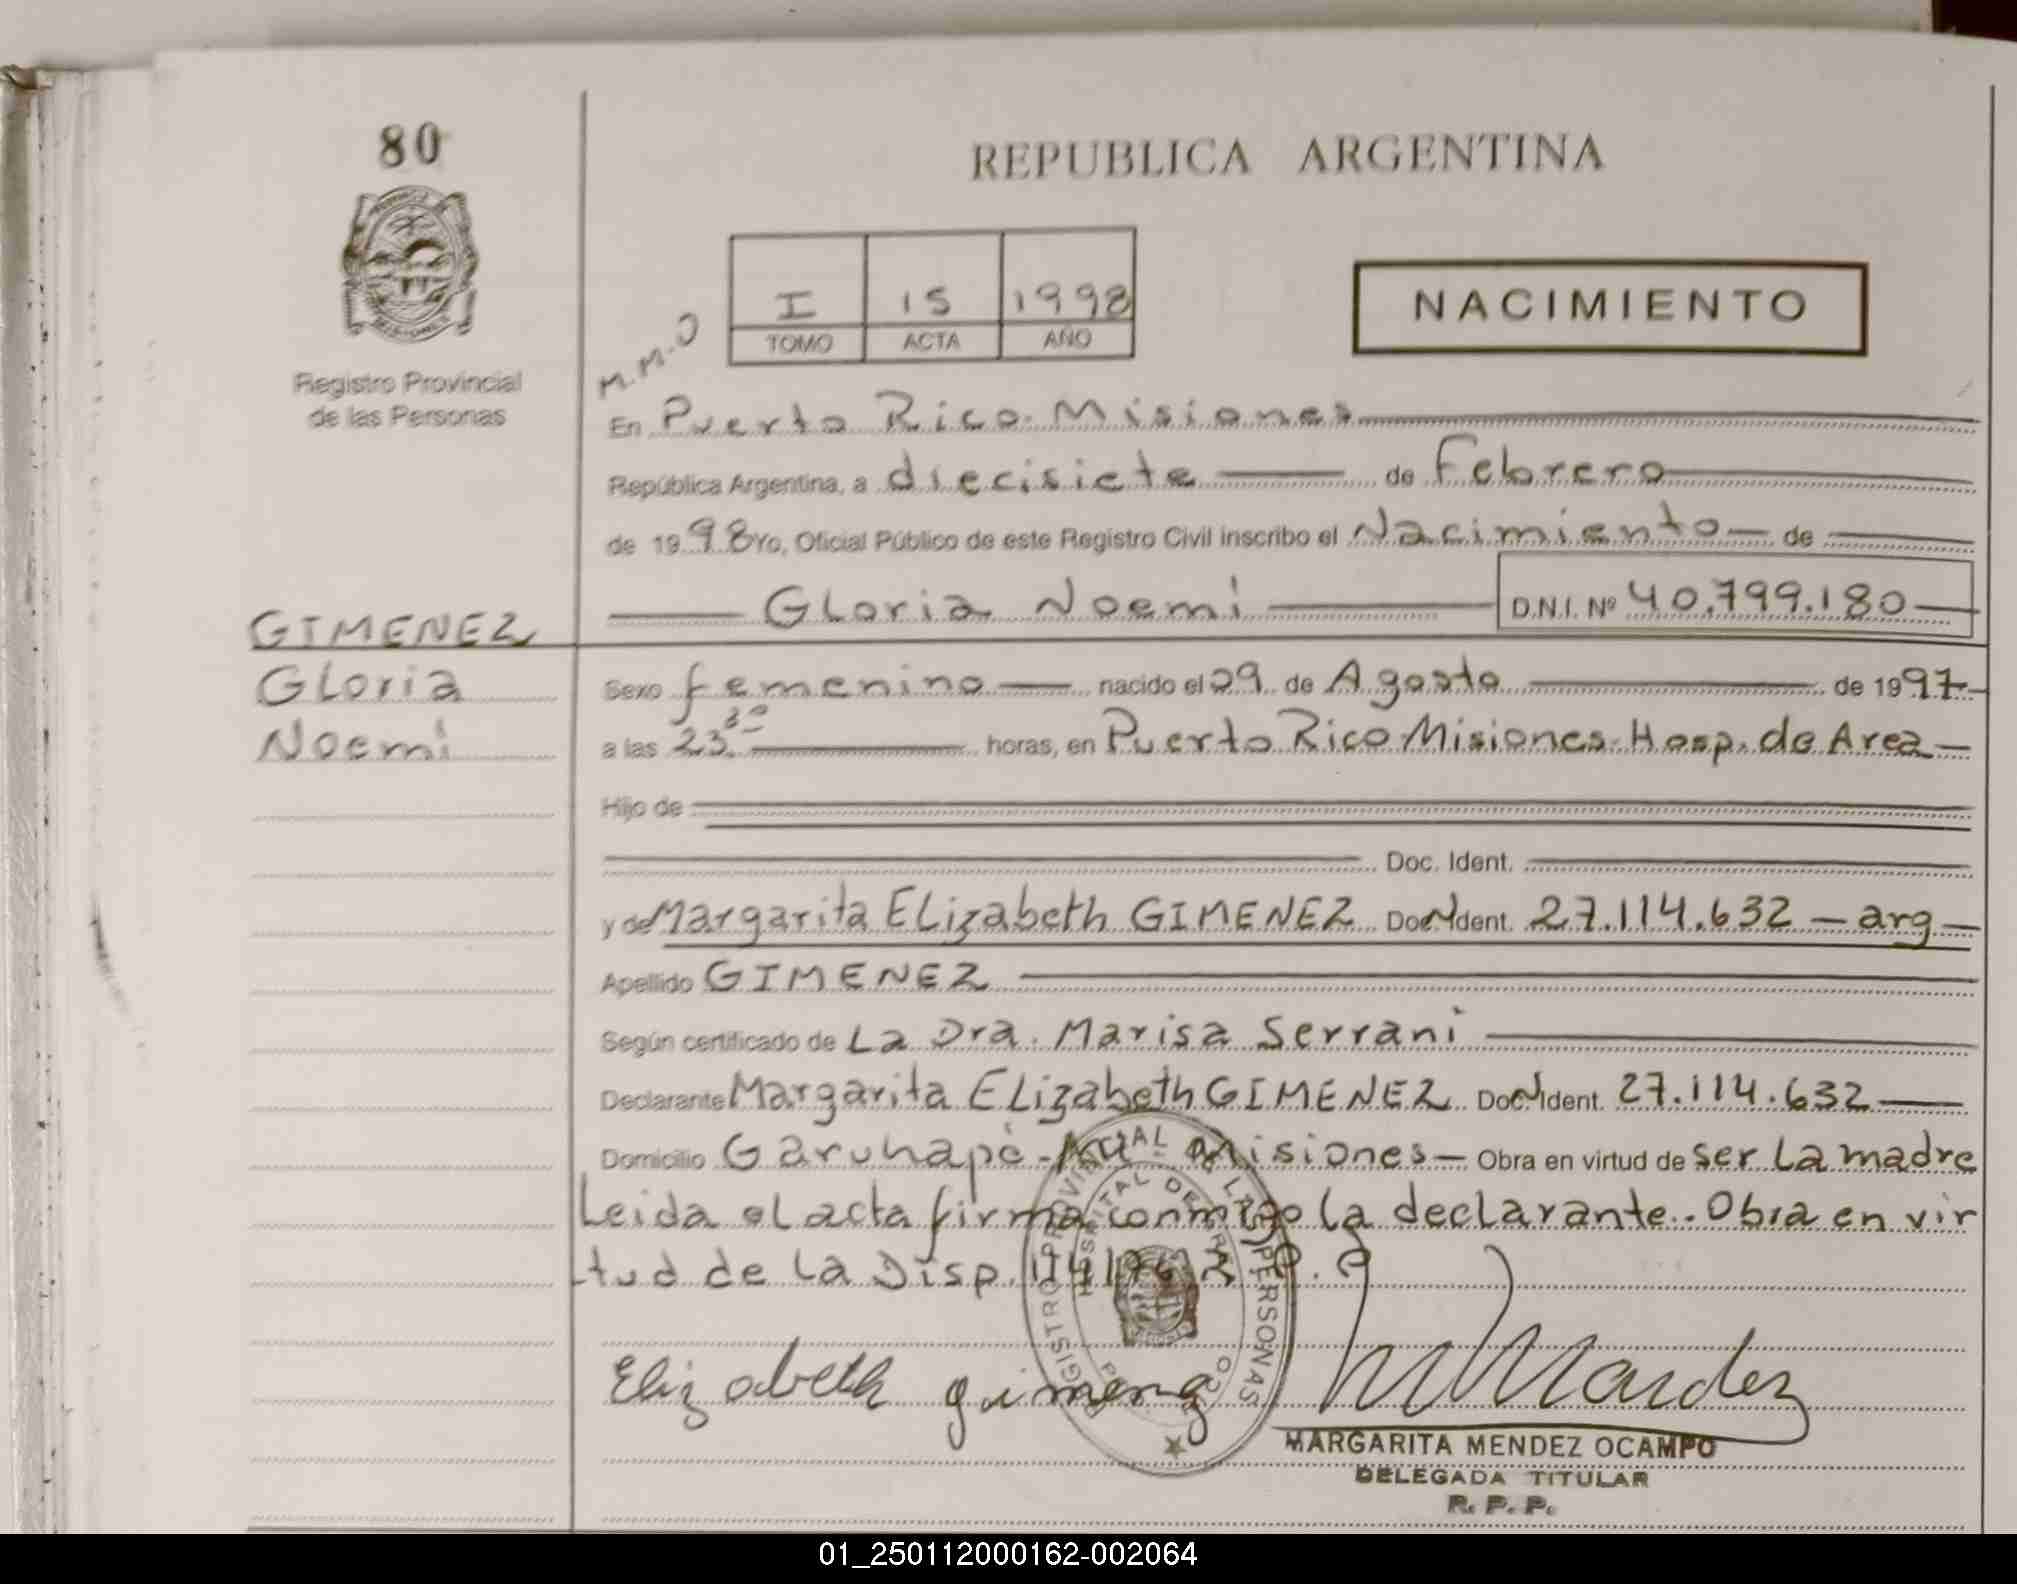 80
REPUBLICA ARGENTINA
PROVINCIA DE MISIONES
Registro Provincial
de las Personas
I 15 1998
TOMO ACTA AÑO
NACIMIENTO
M.M.O
En Puerto Rico. Misiones
República Argentina, a diecisiete de Febrero
de 1998 Yo, Oficial Público de este Registro Civil inscribo el Nacimiento de
Gloria Noemí D.N.I. Nº 40.799.180
GIMENEZ
Gloria
Noemí
Sexo femenino nacido el 29 de Agosto de 1997
a las 23.30 horas, en Puerto Rico Misiones. Hosp. de Area
Hijo de
Doc. Ident.
y de Margarita Elizabeth GIMENEZ Doc. Ident. 27.114.632 — arg
Apellido GIMENEZ
Según certificado de La Dra. Marisa Serrani
Declarante Margarita Elizabeth GIMENEZ Doc. Ident. 27.114.632
Domicilio Garuhapé - Misiones — Obra en virtud de ser la madre
Leida el acta firma conmigo la declarante. Obra en vir
tud de la Disp.
REGISTRO PROVINCIAL DE LAS PERSONAS
HOSPITAL DE AREA
PTO. RICO
Elizabeth gimenez
M Mendez
MARGARITA MENDEZ OCAMPO
DELEGADA TITULAR
R. P. P.
01_250112000162-002064